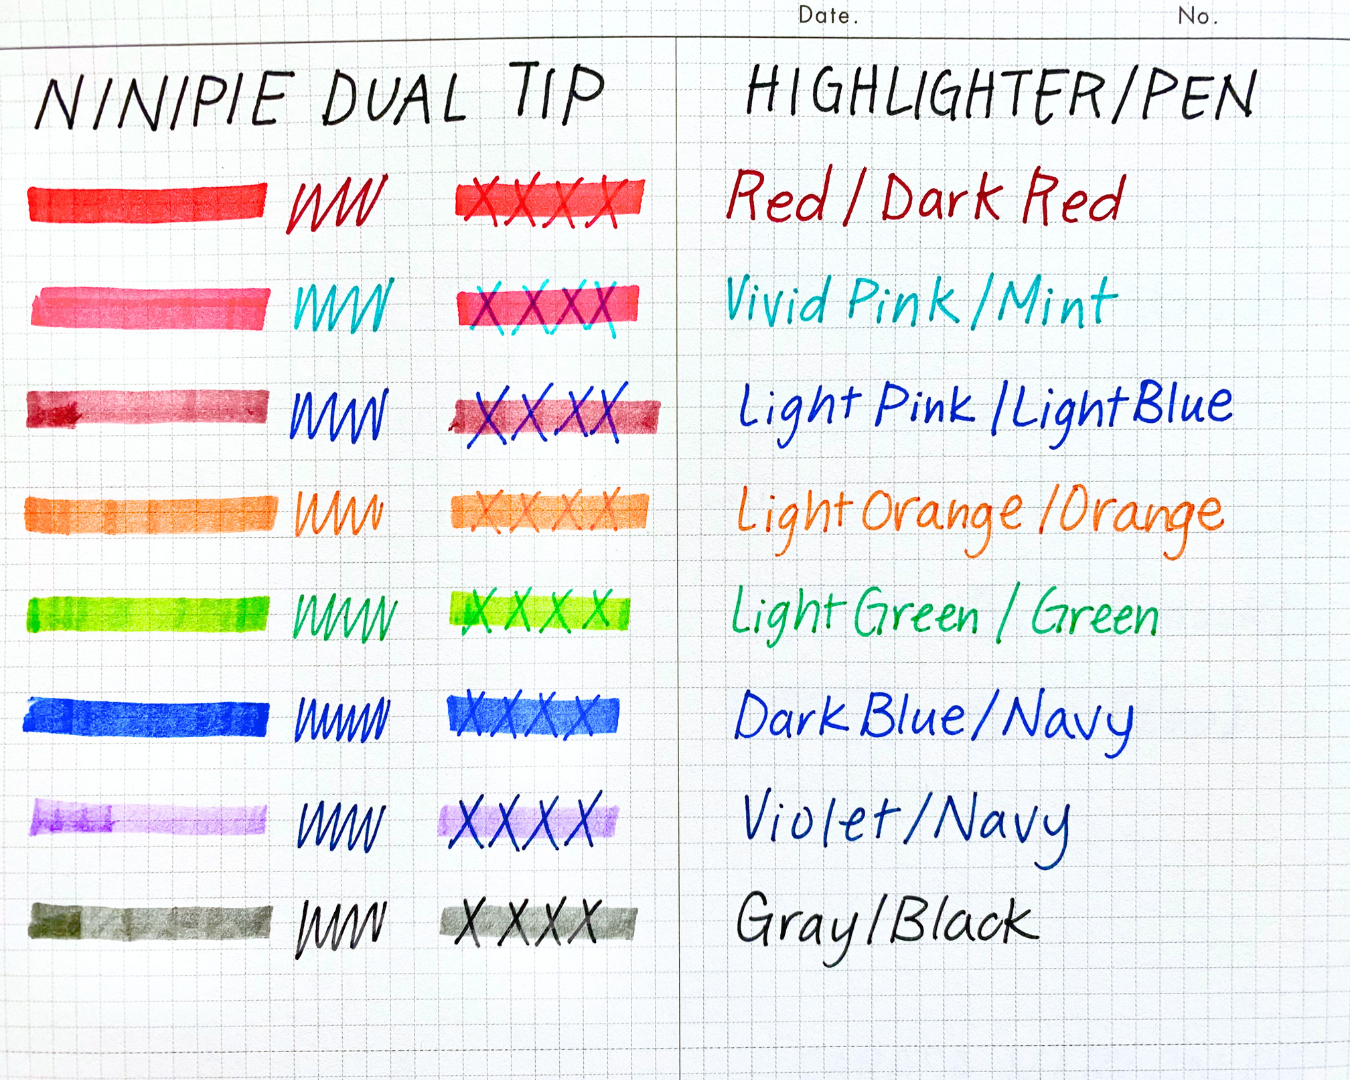 Date. No.
NINIPIE DUAL TIP HIGHLIGHTER/PEN
XXXX Red / Dark Red
XXXX Vivid Pink / Mint
XXXX Light Pink / Light Blue
XXXX Light Orange / Orange
XXXX Light Green / Green
XXXX Dark Blue / Navy
XXXX Violet / Navy
XXXX Gray / Black